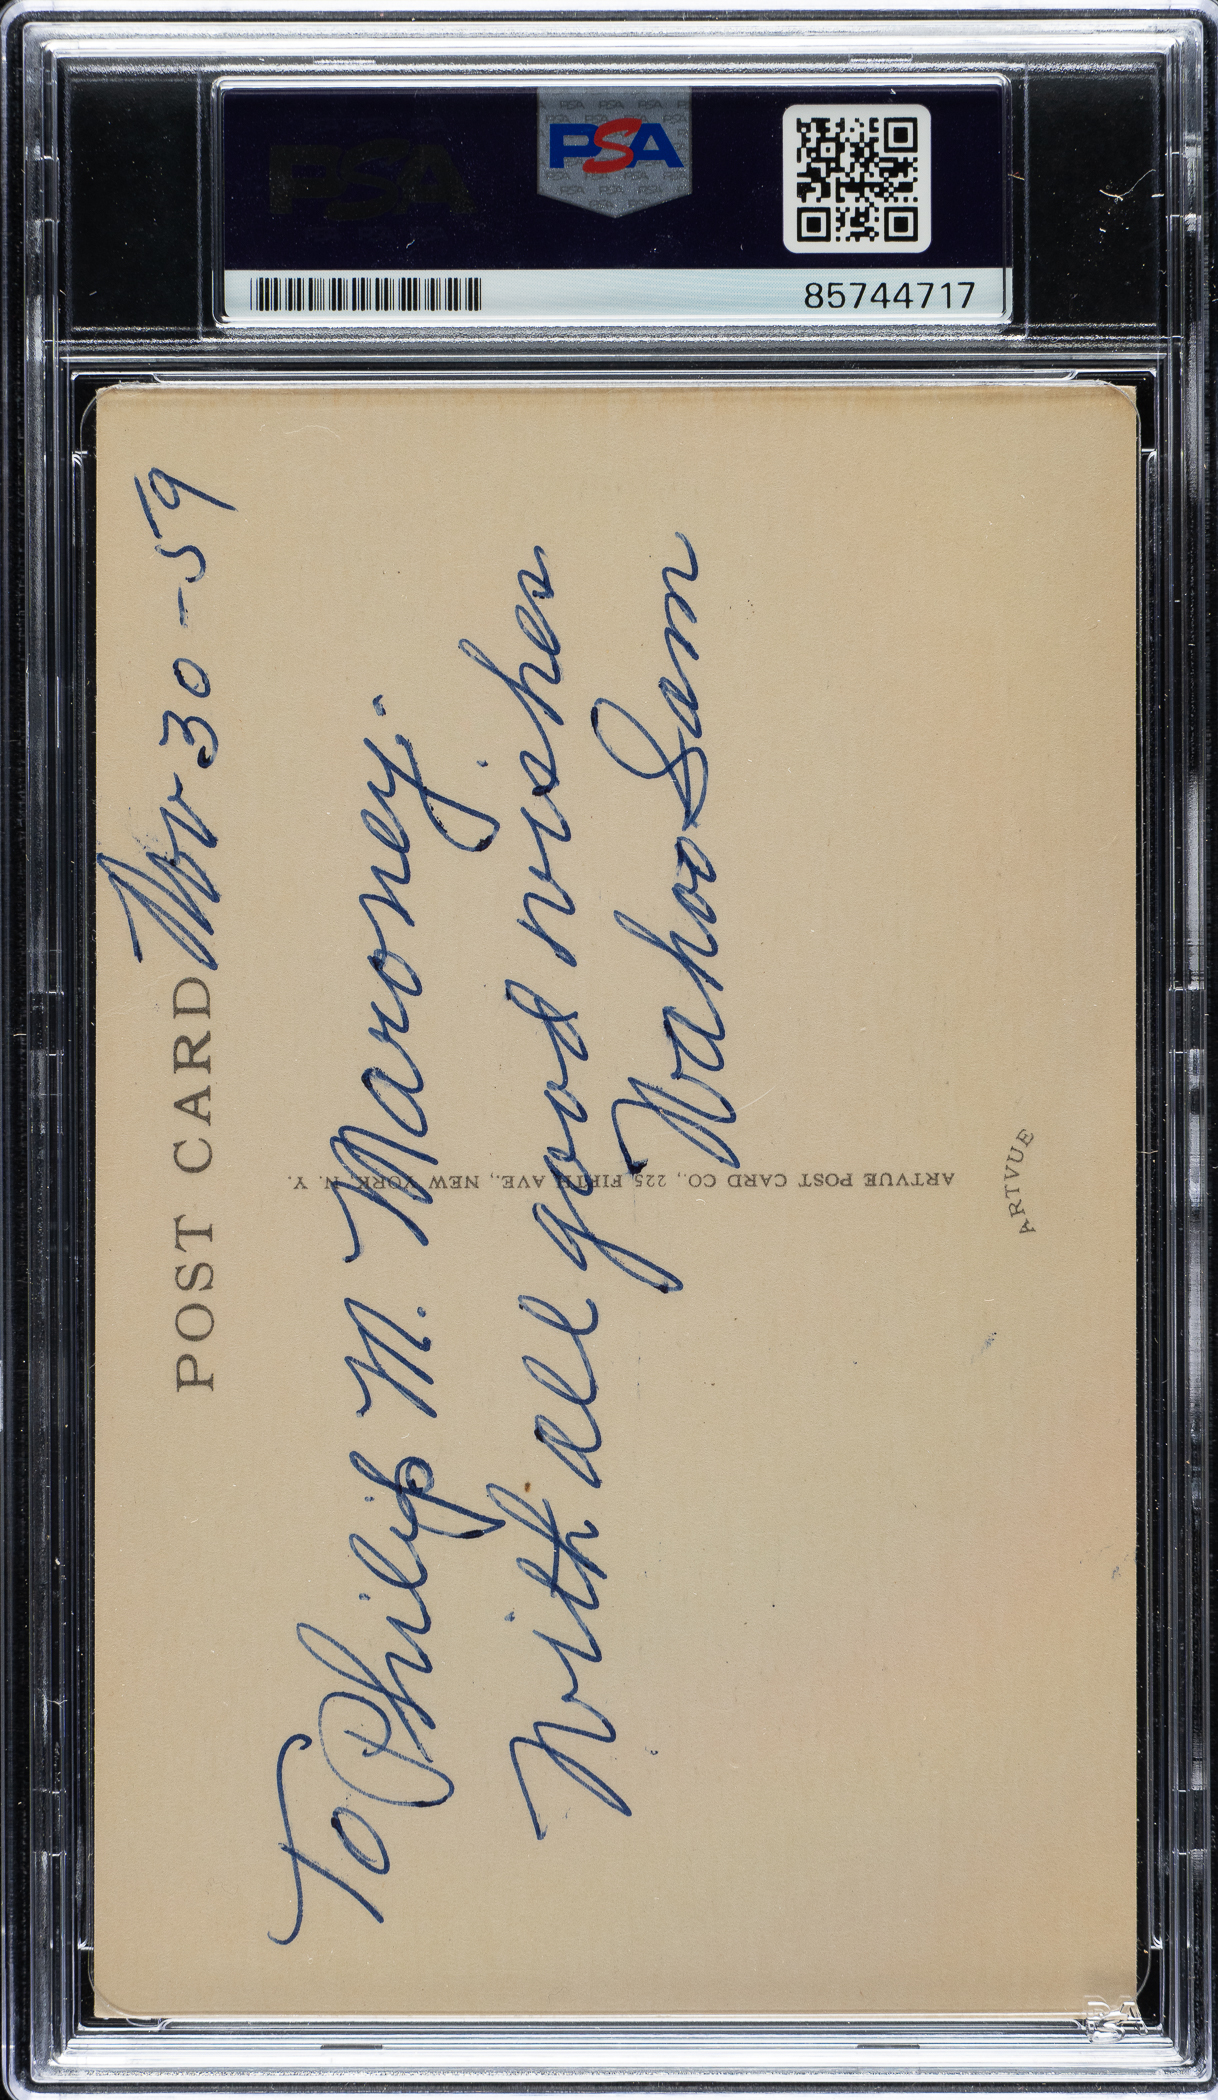 PSA
PSA
85744717
POST CARD
Nov 30-59
To Philip M. Maroney.
With all good wishes
Wahoo Sam
ARTVUE POST CARD CO., 225 FIFTH AVE., NEW YORK, N. Y.
ARTVUE